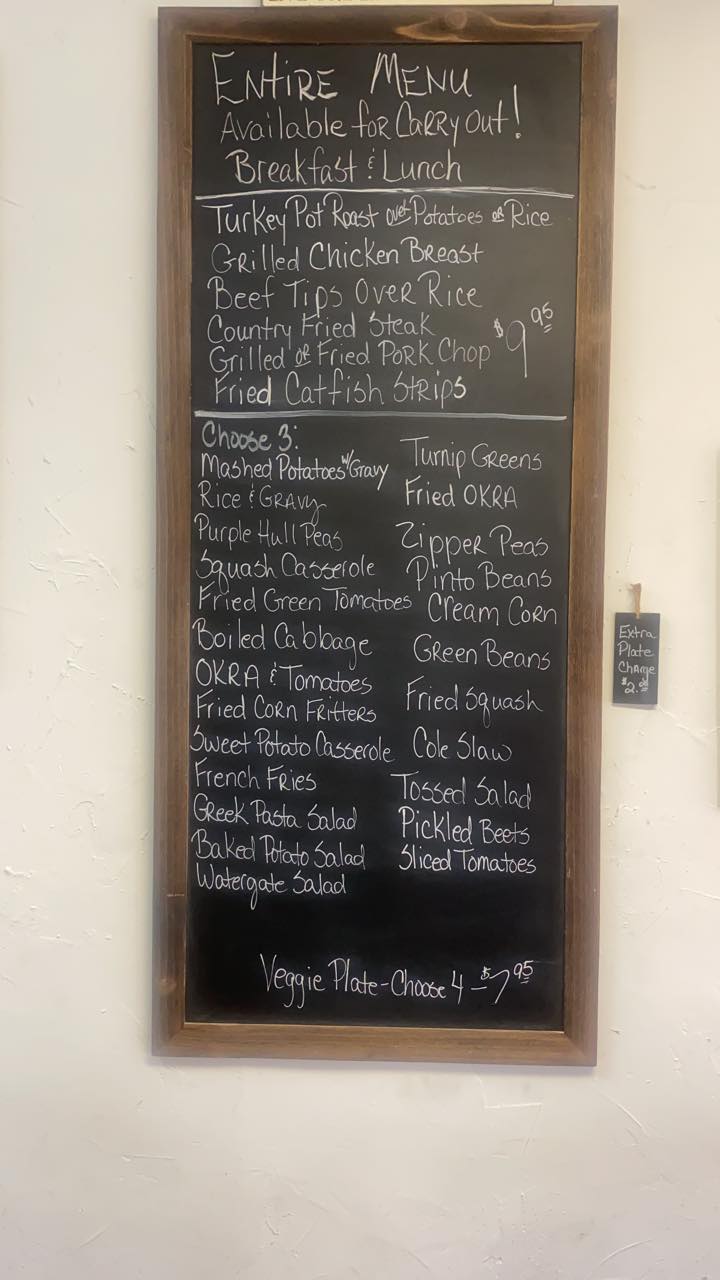 ENTIRE MENU
Available for Carry Out!
Breakfast & Lunch
Turkey Pot Roast over Potatoes or Rice
Grilled Chicken Breast
Beef Tips Over Rice
Country Fried Steak
Grilled or Fried Pork Chop
Fried Catfish Strips
$9.95
Choose 3:
Mashed Potatoes w/Gravy
Rice & Gravy
Purple Hull Peas
Squash Casserole
Fried Green Tomatoes
Boiled Cabbage
OKRA & Tomatoes
Fried Corn Fritters
Sweet Potato Casserole
French Fries
Greek Pasta Salad
Baked Potato Salad
Watergate Salad
Turnip Greens
Fried OKRA
Zipper Peas
Pinto Beans
Cream Corn
Green Beans
Fried Squash
Cole Slaw
Tossed Salad
Pickled Beets
Sliced Tomatoes
Veggie Plate - Choose 4 - $7.95
Extra
Plate
Charge